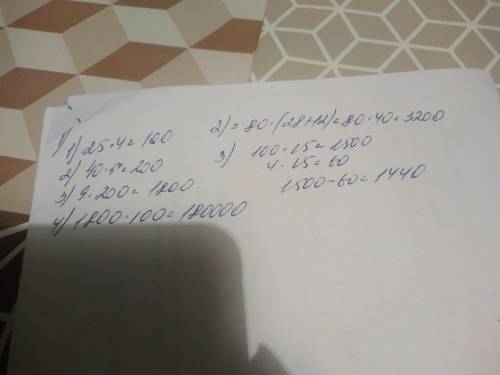 1) 1) 25·4=100
2) 40·5=200
3) 9·200=1800
4) 1800·100=180000
2) = 80·(28+12)=80·40=3200
3) 100·15=1500
4·15=60
1500-60=1440